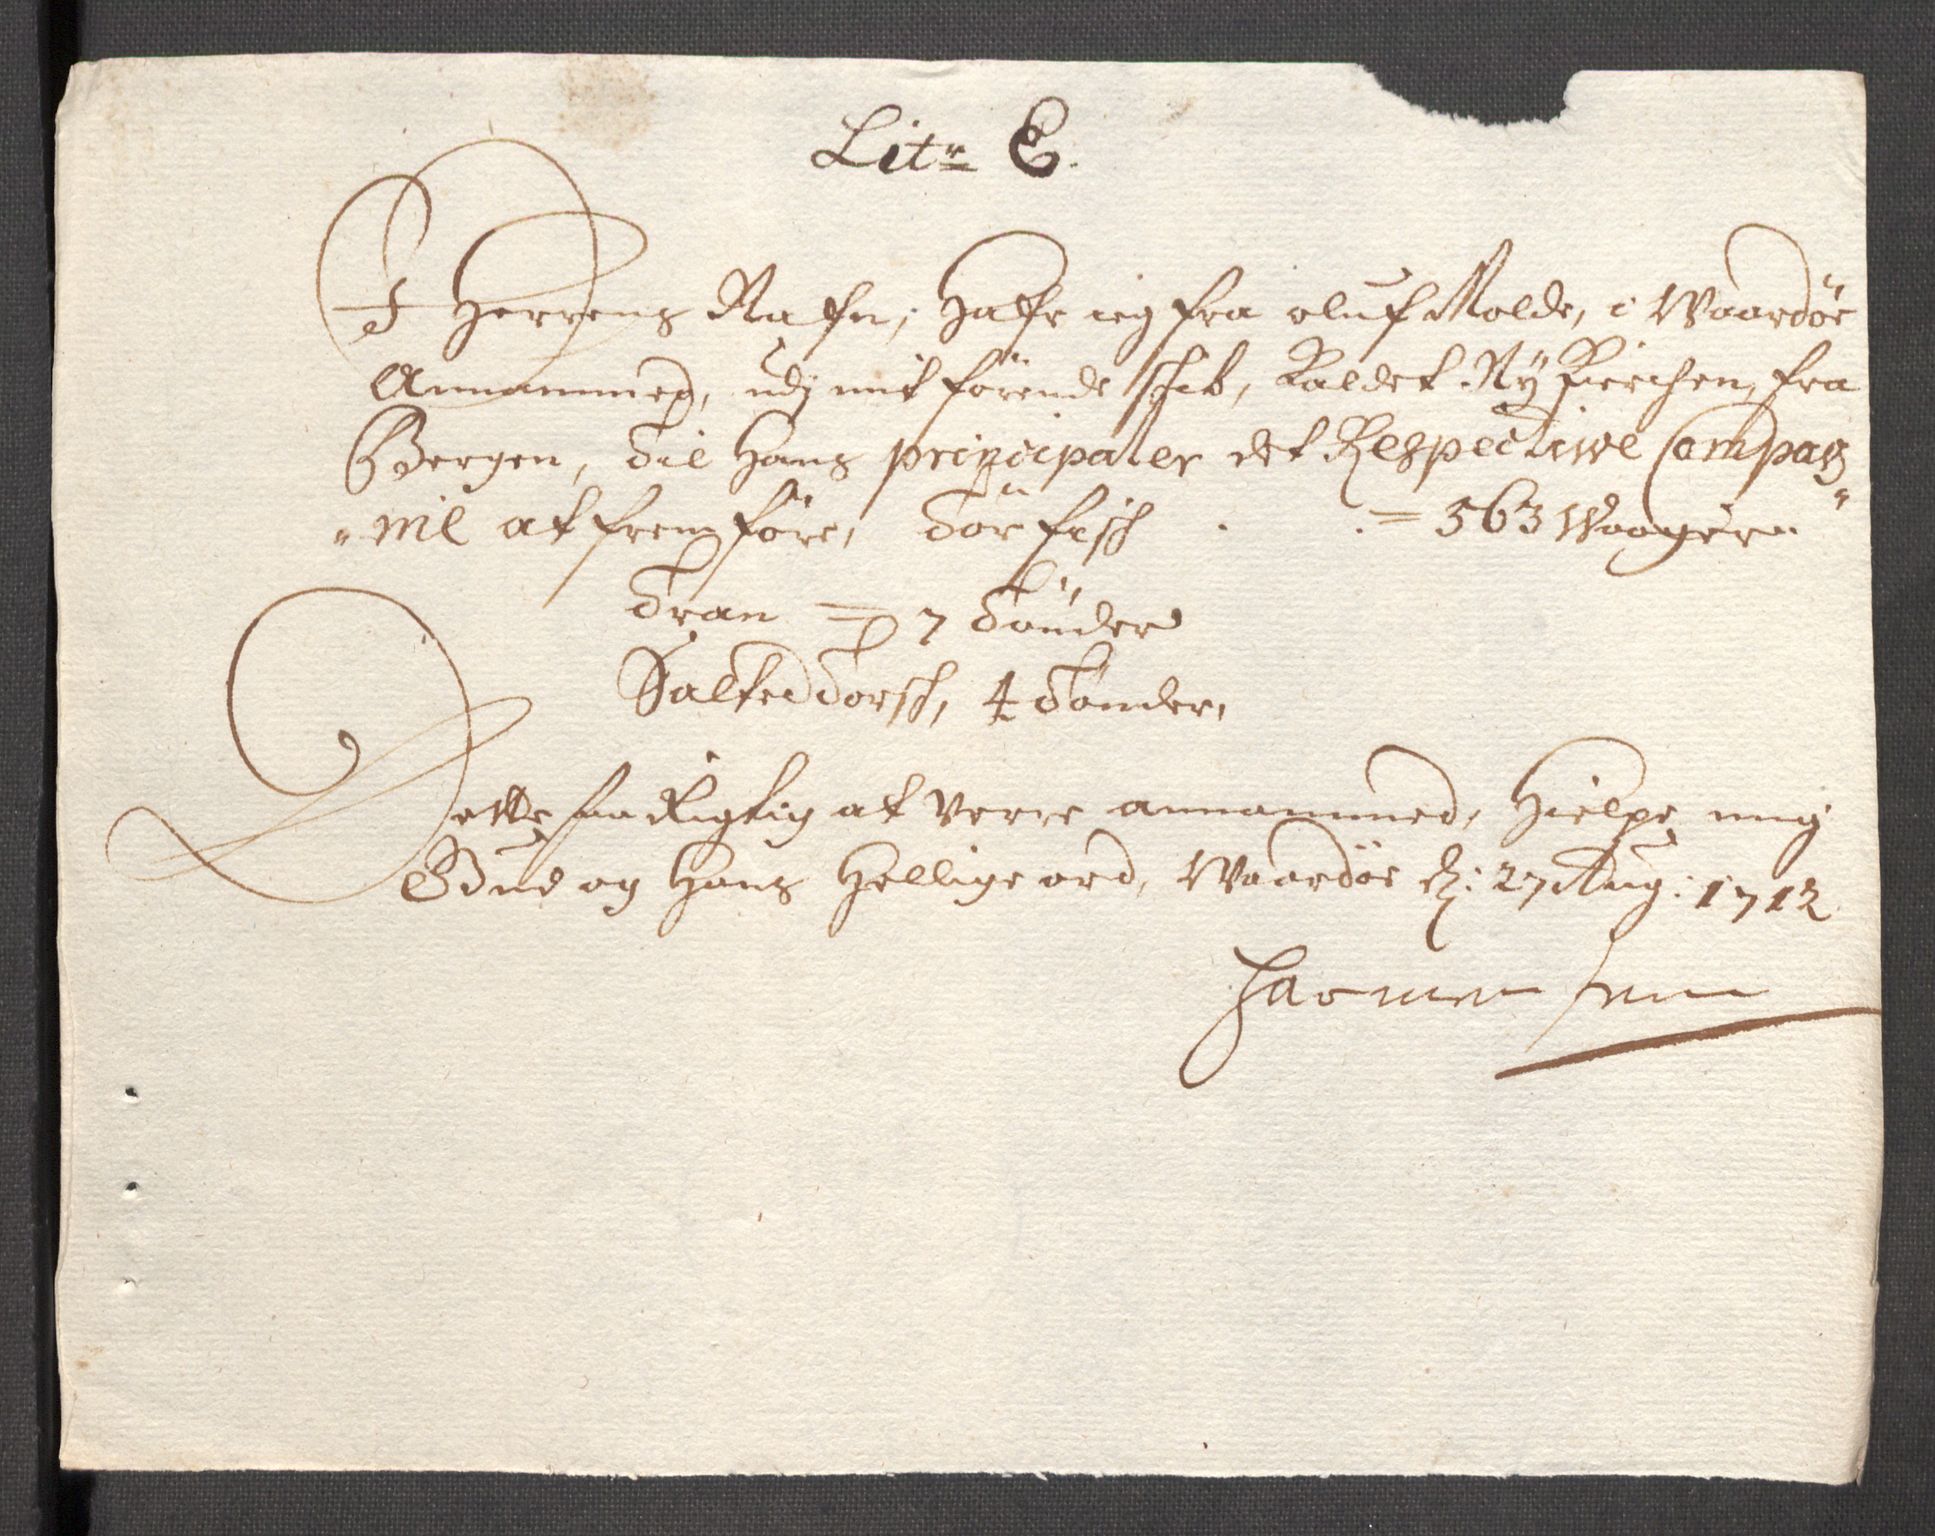 Litr E.
I Herrens Nafn, Hafr ieg fra oluf Molde, i Waardöe
Annammed, udj mitförende schib, Kaldet Ny Kierchen, fra
Bergen, til Hans principaler det Respective Compag
"nie at frem före, Tör fisch . . = 563 Waager
Tran = 7 Tönder
Salted Torsch, 4 Tönder,
Dette saa Rigtig at verre annammed, Hielpe mig
Gud og Hans Hellige ord, Waardöe d: 27 Aug: 1712